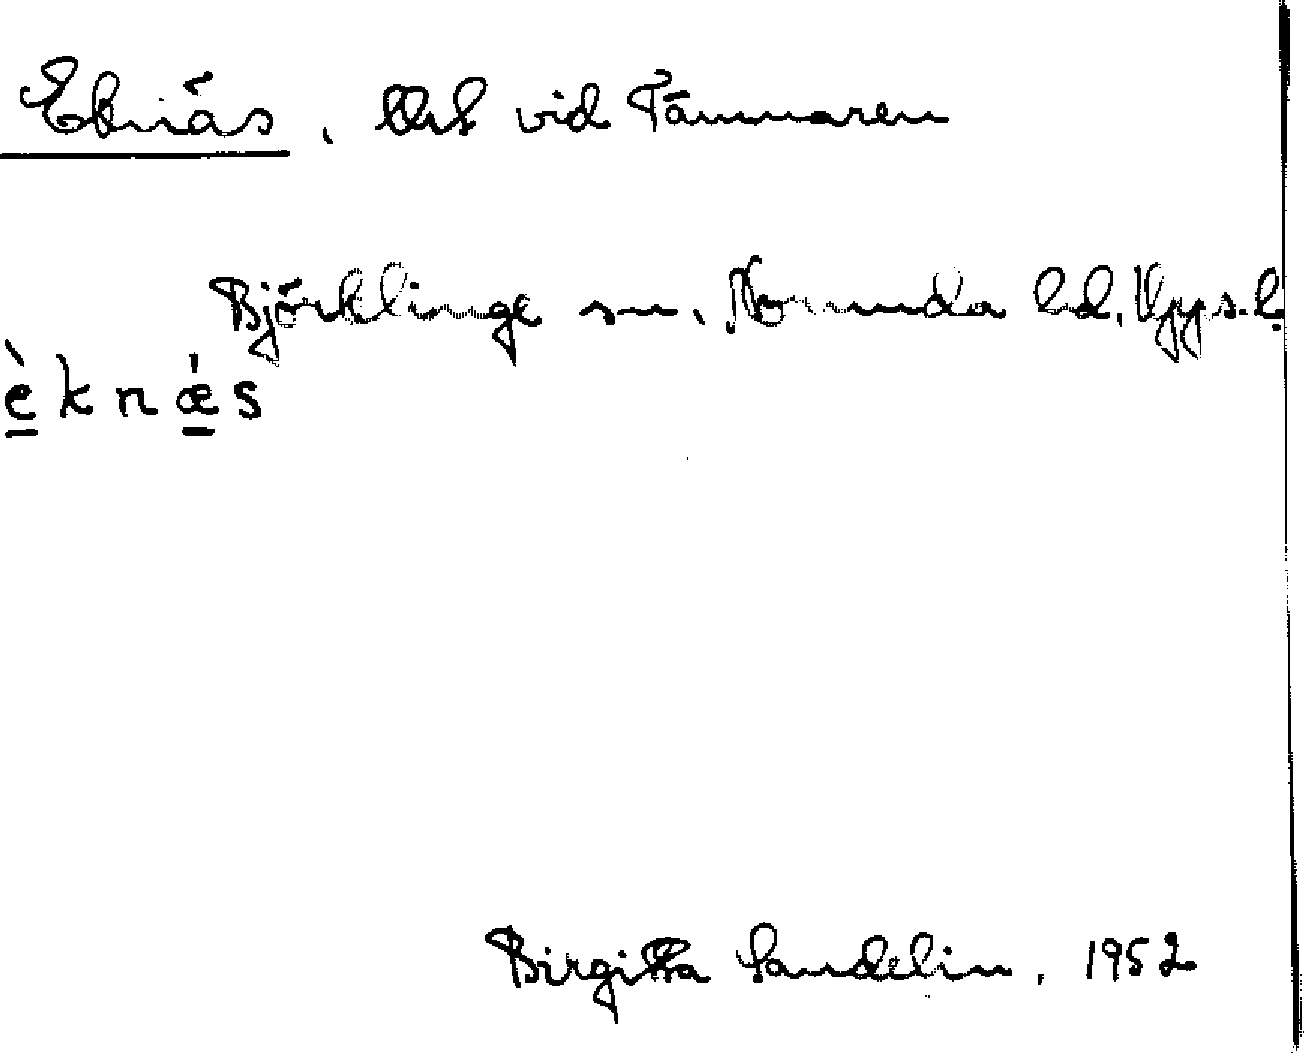 Eknäs, Ort vid Tämnaren
Björklinge sn. Norunda hd. Upps. l.
è k n ǽ s
Birgitta Sandelin, 1952